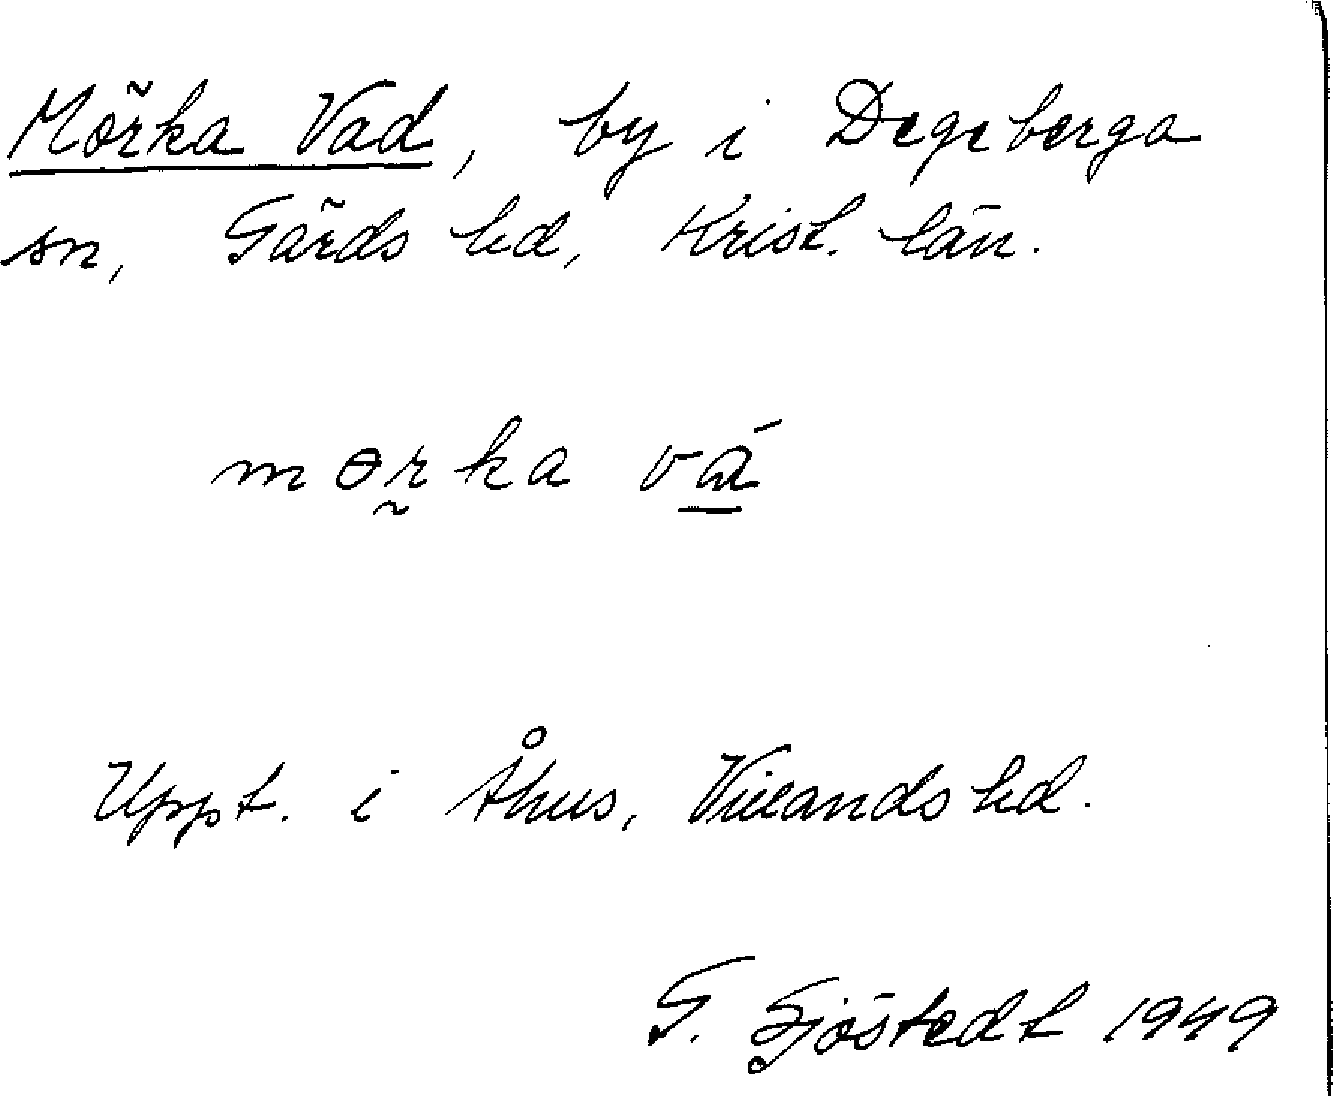 Mörka Vad, by i Degeberga
sn, Gärds hd, Krist. län.
mɵr̰ka vá̱
Uppt. i Åhus, Villands hd.
G. Sjöstedt 1949